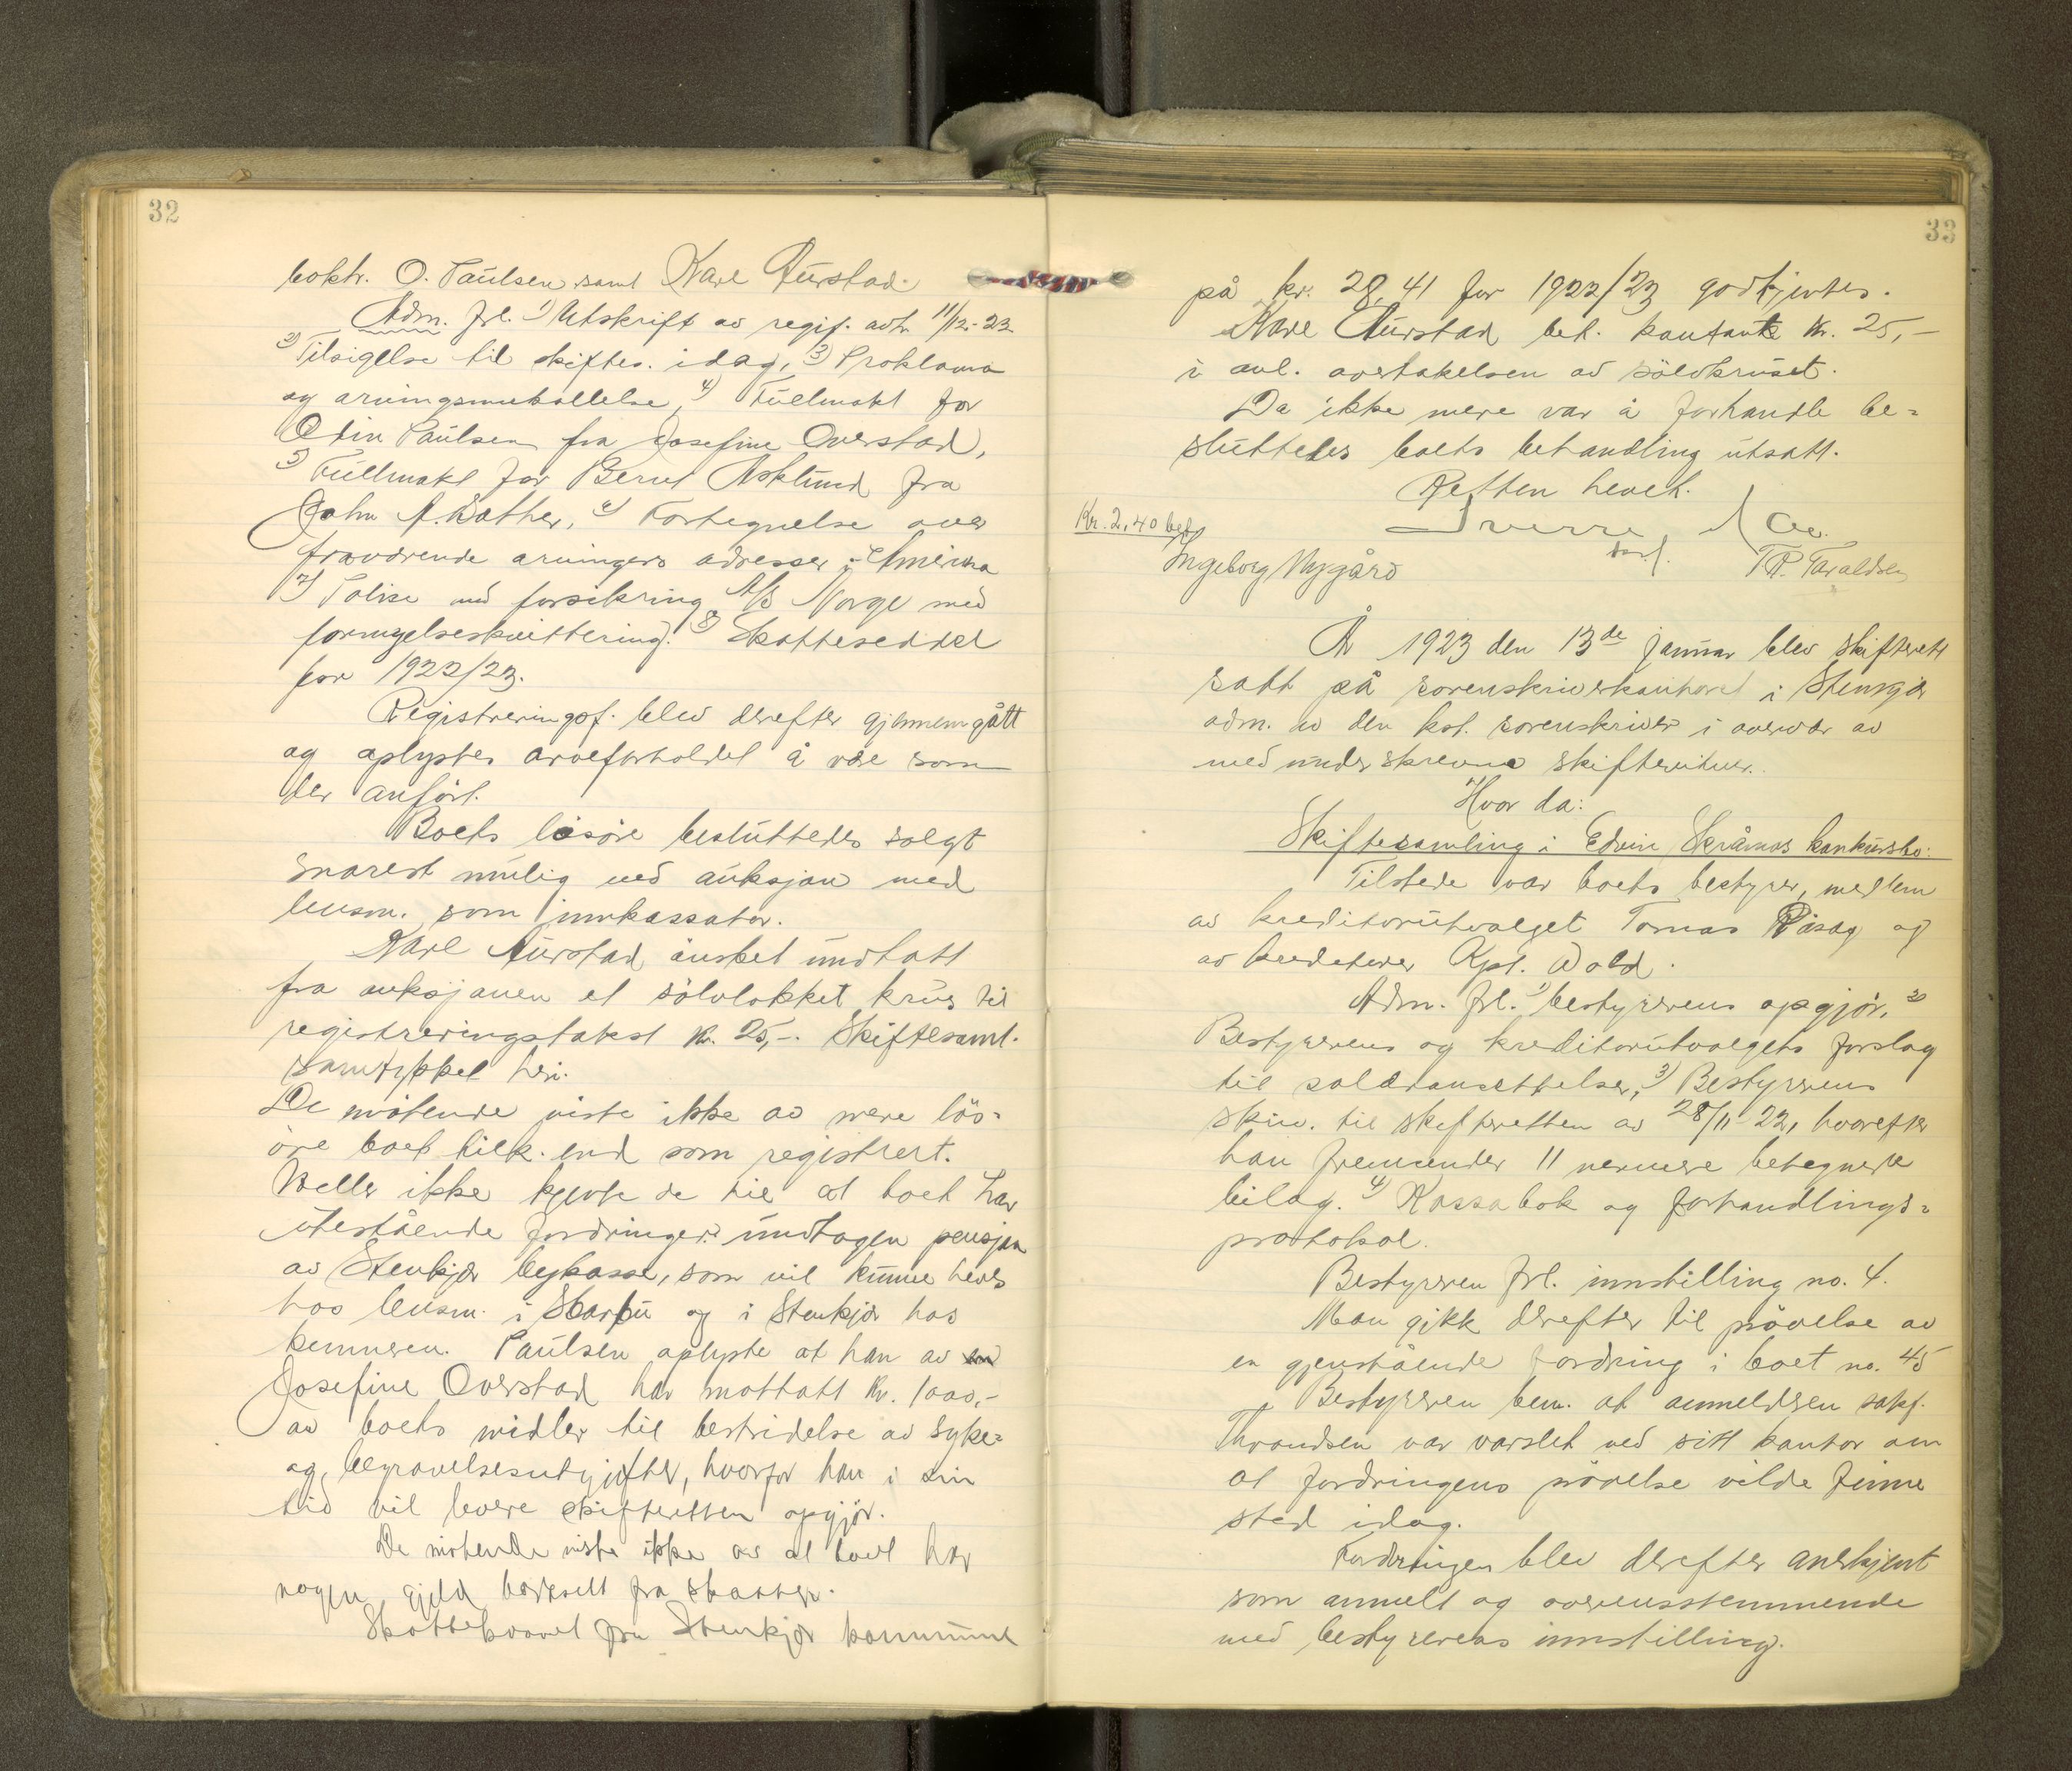 32
boktr. O. Paulsen samt Karl Aurstad.
Adm. frl. 1) Utskrift av regif. avh. 11/12-22
2) Tilsigelse til skiftes. idag, 3) Proklama
og arvingsinnkallelse, 4) Fullmakt for
Odin Paulsen fra Josefine Overstad,
5) Fullmakt for Bernt Asklund fra
John A. Wather, 6) Fortegnelse over
fraværende arvingers adresser i Amerika
7) Polise ved forsikring A/S Norge med
fornyelseskvittering. 8) Skatteseddel
for 1922/23.
Registreringsf. blev derefter gjennemgått
og oplystes arveforholdet å være som
der anført.
Boets løsøre besluttedes solgt
snarest mulig ved auksjon med
lensm. som innkassator.
Karl Aurstad ønsket undtatt
fra auksjonen et sølvlokket krus til
registreringstakst kr. 25,-. Skiftesaml.
samtykket heri.
De møtende viste ikke av mere løs=
øre boet tilh. end som registrert.
Heller ikke kjente de til at boet har
utestående fordringer undtagen pensjon
av Stenkjær bykasse, som vil kunne heves
hos lensm. i Skarbu og i Stenkjær hos
kemneren. Paulsen oplyste at han av
Josefine Overstad har mottatt kr. 1000,-
av boets midler til bestridelse av syke=
og begravelsesutgifter, hvorfor han i sin
tid vil levere skifteretten opgjør.
De møtende viste ikke av at boet har
nogen gjeld bortsett fra skatter.
Skattekravet fra Stenkjær kommune
33
på kr. 28,41 for 1922/23 godkjentes.
Karl Aurstad bet. kontant kr. 25,-
i anl. overtakelsen av sølvkruset.
Da ikke mere var å forhandle be=
sluttedes boets behandling utsatt.
Retten hevet.
Kr. 2,40 bet.
Sverre
Ingeborg Nygård
T.P. Taraldsen
År 1923 den 13de januar blev skifterett
satt på sorenskriverkontoret i Stenkjær
adm. av den kst. sorenskriver i overvær av
medunderskrevne skiftevitner.
Hvor da:
Skiftesamling i Edvin Skråmos konkursbo:
Tilstede var boets bestyrer, medlem
av kreditorutvalget Tomas Risag og
av kreditorer Kpt. Wold.
Adm. frl. 1) bestyrerens opgjør, 2)
Bestyrerens og kreditorutvalgets forslag
til salæransettelser, 3) Bestyrerens
skriv. til skifteretten av 28/11-22, hvorefter
han fremsender 11 nermere betegnete
bilag. 4) Kassabok og forhandlings=
protokol.
Bestyreren frl. innstilling no. 4.
Man gikk derefter til prøvelse av
en gjenstående fordring i boet no. 45
Bestyreren bem. at anmelderen sakf.
Throndsen var varslet ved sitt kontor om
at fordringens prøvelse vilde finne
sted idag.
Fordringen blev derefter anerkjent
som anmelt og overensstemmende
med bestyrerens innstilling.